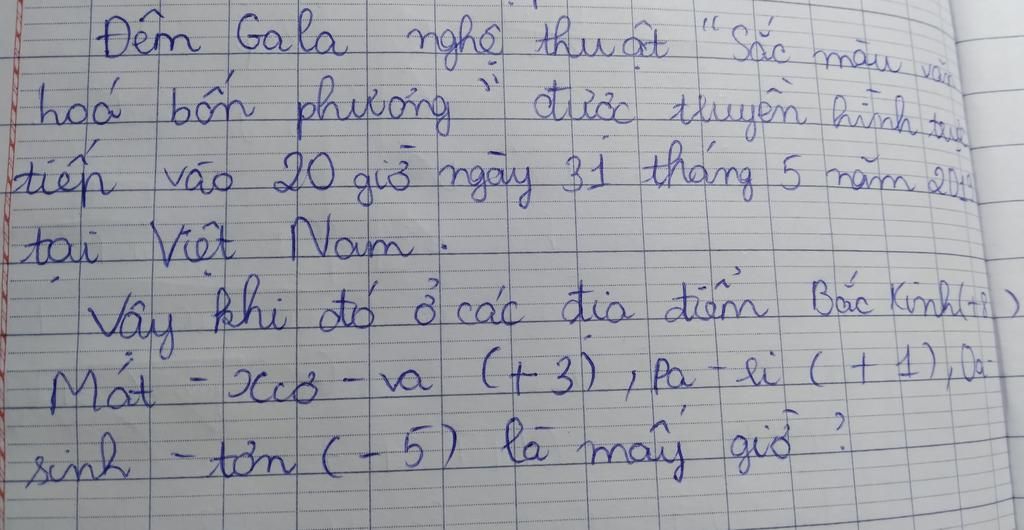 Đêm Gala nghệ thuật "Sắc màu văn
hoá bốn phương" được truyền hình trực
tiếp vào 20 giờ ngày 31 tháng 5 năm
tại Việt Nam.
Vậy khi đó ở các địa điểm Bắc Kinh (+8)
Mát - xcơ - va (+3), Pa - ri (+1), Oa-
sinh - tơn (-5) là mấy giờ?